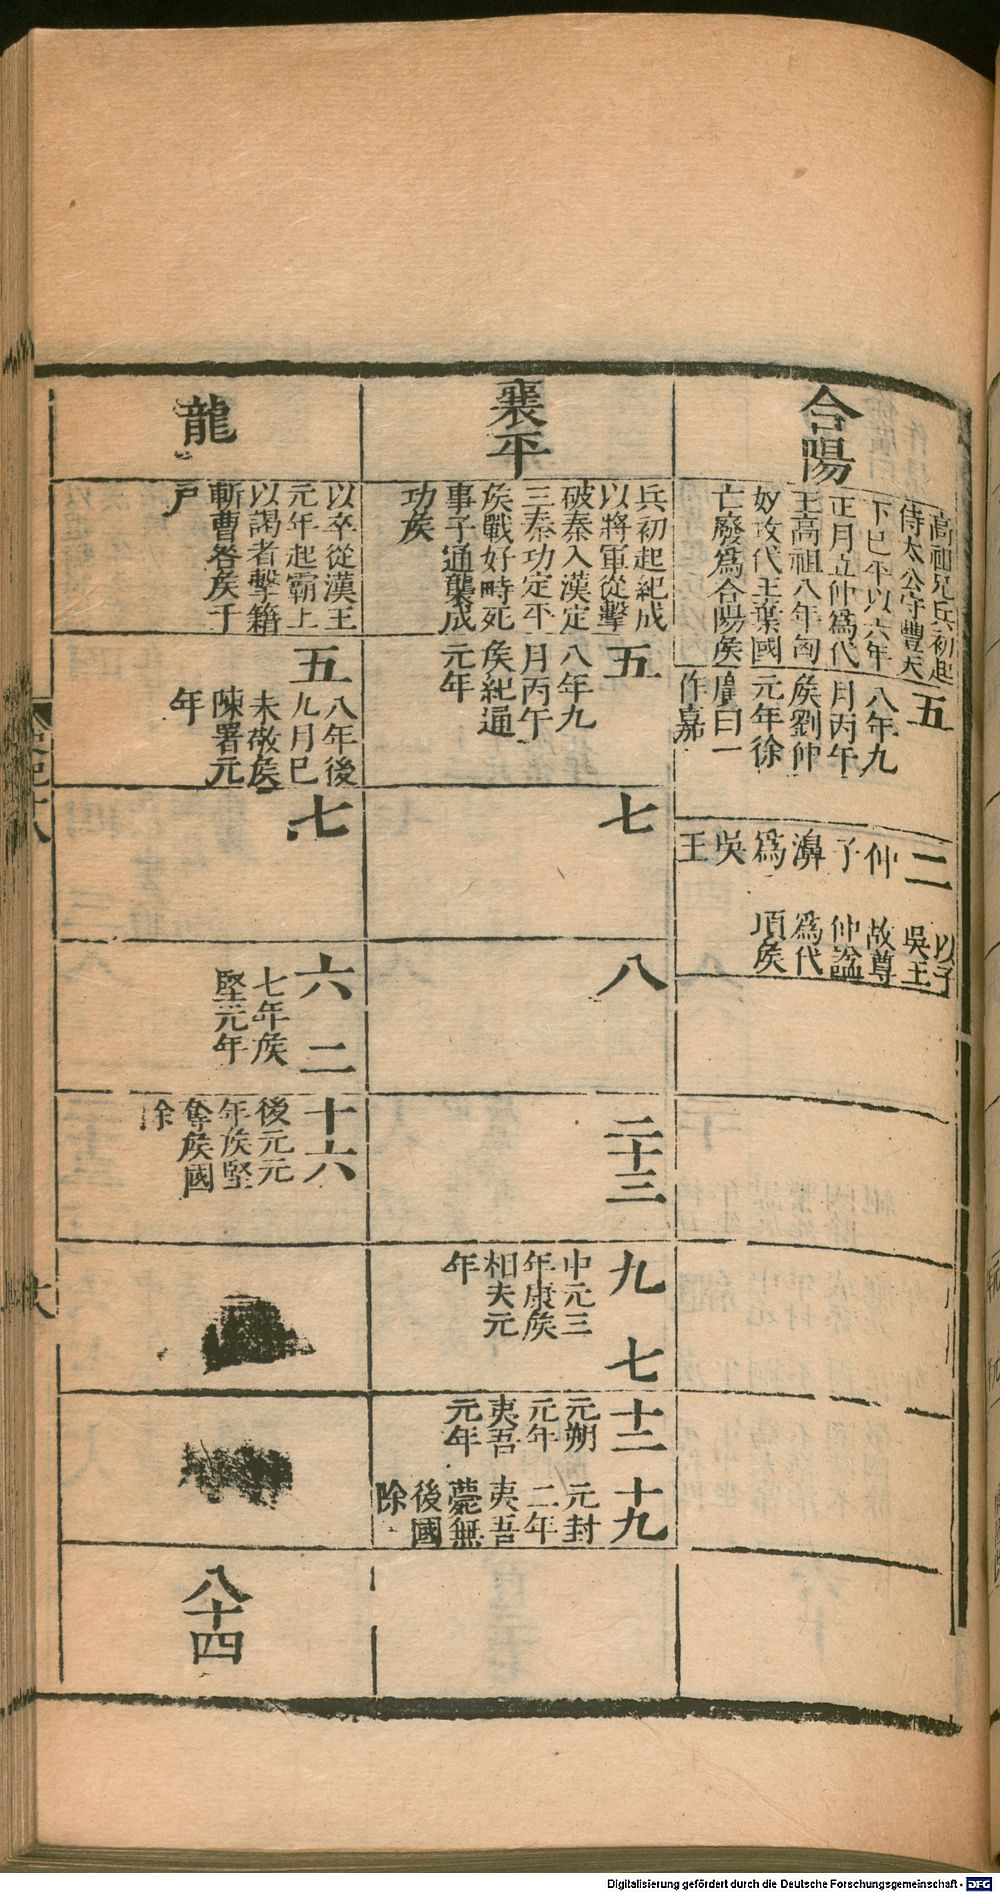 合陽
高祖兄兵初起
侍太公守豐天
下已平以六年
正月立仲爲代
王高祖八年匈
奴攻代王棄國
亡廢爲合陽矦
五
八年九
月丙午
矦劉仲
元年徐
廣曰一
作嘉
二
仲
子
濞
爲
吳
王
以子
吳王
故尊
仲謚
爲代
頃矦
襄平
兵初起紀成
以將軍從擊
破秦入漢定
三秦功定平
矦戰好畤死
事子通襲成
功矦
五
八年九
月丙午
矦紀通
元年
七
八
二十三
九
中元三
年康矦
相夫元
年
七
十二
元朔
元年
夷吾
元年
十九
元封
二年
夷吾
薨無
後國
除
龍
以卒從漢王
元年起霸上
以謁者擊籍
斬曹咎矦千
戸
五
八年後
九月巳
未敬矦
陳署元
年
七
六
七年矦
堅元年
二
十六
後元元
年矦堅
奪矦國
除
八十四